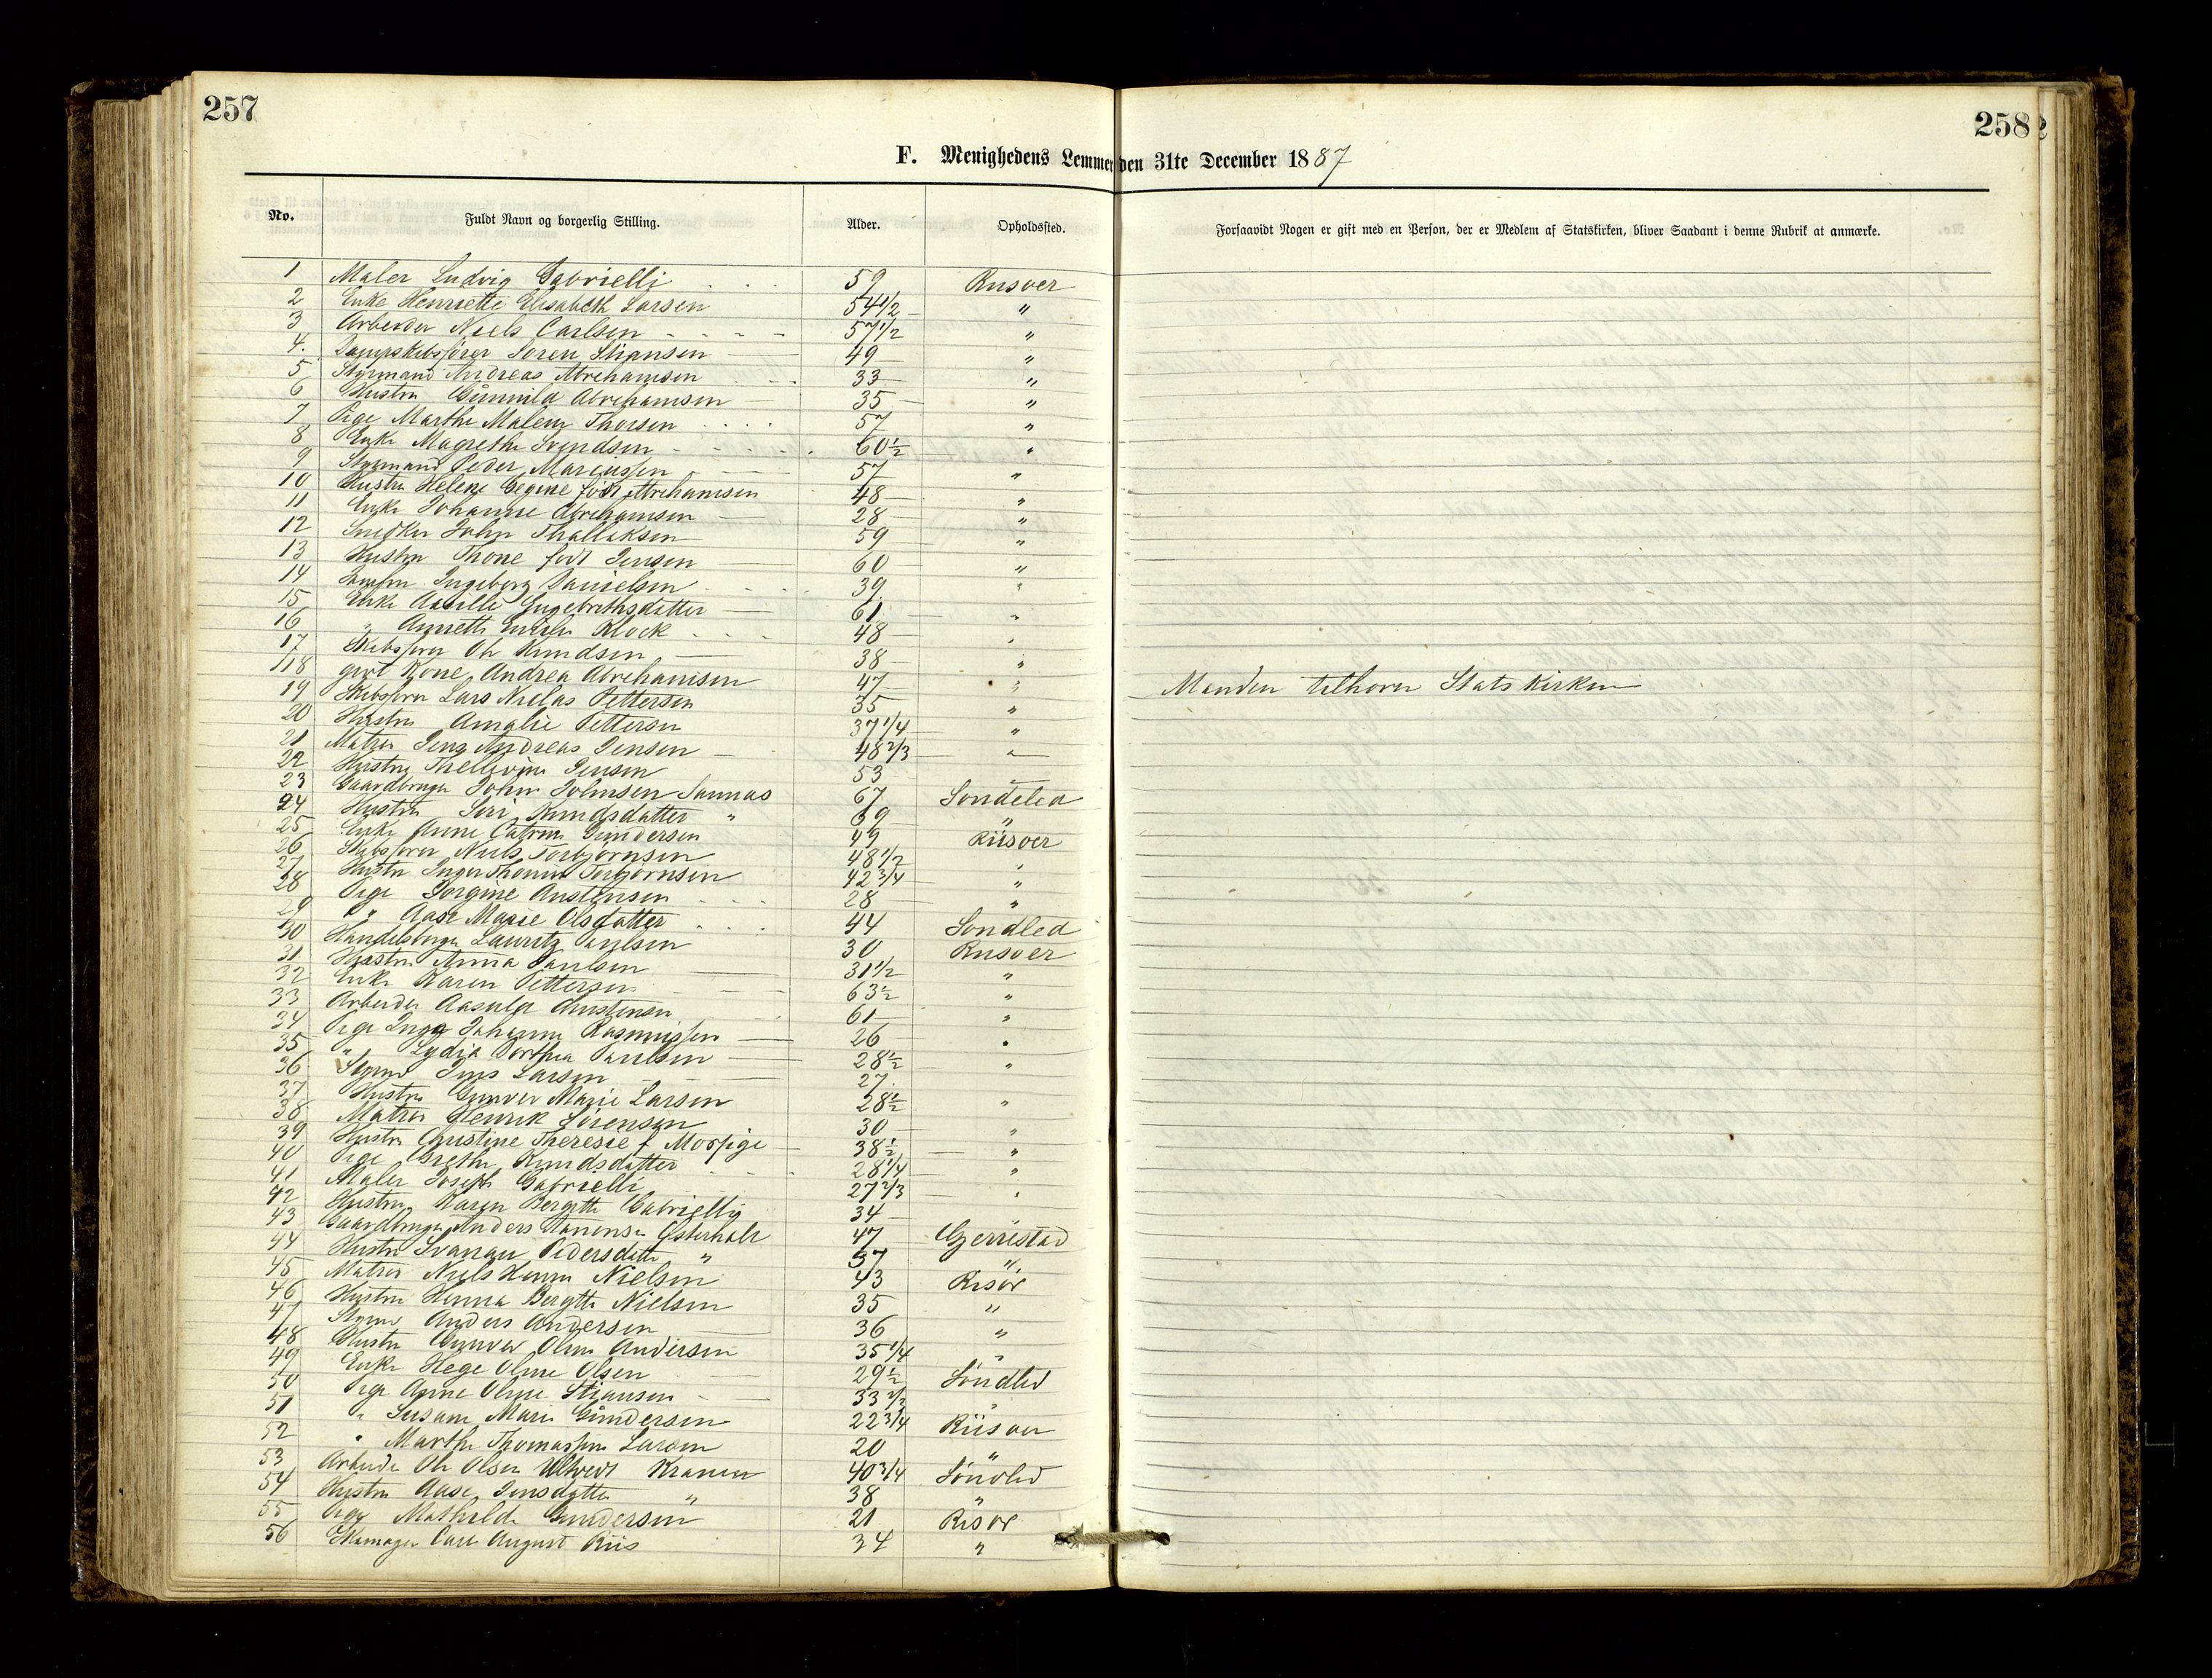 257
258
F. Menighedens Lemmer den 31te December 1887
No. Fuldt Navn og borgerlig Stilling. Alder. Opholdssted. Forsaavidt Nogen er gift med en Person, der er Medlem af Statskirken, bliver Saadant i denne Rubrik at anmærke.
1 Maler Ludvig Gabrielli 59 Riisoer
2 Enke Henriette Elisabeth Larsen 54 1/2 "
3 Arbeider Niels Carlsen 57 1/2 "
4. Dampskibsfører Søren Stiansen 49 "
5 Styrmand Andreas Abrehamsen 33 "
6 Hustru Gunnild Abrehamsen 35 "
7 Pige Marthe Malene Thorsen 57 "
8 Enke Magrethe Svendsen 60 1/2 "
9 Styrmand Peder Marcussen 57 "
10 Hustru Helene Gegine født Abrehamsen 48 "
11 Enke Johanne Abrehamsen 28 "
12 Snedker John Thallaksen 59 "
13 Hustru Thone født Jensen 60 "
14 Ingeborg Danielsen 39 "
15 Enke Aasille Engebrethsdatter 61 "
16 " Annette Klock 48 "
17 Skibsfører Ole Knudsen 38 "
18 gift Kone Andrea Abrehamsen 47 " Manden tilhører Statskirken
19 Skibsfører Lars Niclas Pettersen 35 "
20 Hustru Amalie Pettersen 37 1/4 "
21 Matros Jens Andreas Jensen 48 2/3 "
22 Hustru Jensen 53
23 Gaardbruger John Johnsen Sannas 67 Sondeled
24 Hustru Siri Knudsdatter " 69 "
25 Enke Anne Catrine Gundersen 49 Riisoer
26 Skibsfører Niels Torbjørnsen 48 1/2 "
27 Hustru Inger Thomine Torbjørnsen 42 3/4 "
28 Pige Jorgine Austensen 28 "
29 " Aase Marie Olsdatter 44 Sondled
30 Handelsborger Lauritz Paulsen 30 Riisoer
31 Hustru Anna Paulsen 31 1/2 "
32 Enke Karen Pettersen 63 1/2 "
33 Arbeider Aasulv Austensen 61 "
34 Pige Inga Johanne Rasmussen 26 "
35 " Lydia Dorthea Paulsen 28 1/2 "
36 Styrm Jens Larsen 27
37 Hustru Gunver Marie Larsen 28 1/2 "
38 Matros Henrik Sørensen 30 "
39 Hustru Christine Theresie f 38 1/2 "
40 Pige Grethe Knudsdatter 28 1/4 "
41 Maler Joseph Gabrielli 27 2/3 "
42 Hustru Karen Bergitte Gabrielli 34
43 Gaardbruger Anders Aanonsen Østerholt 47 Gjerrestad
44 Hustru Svanau Pedersdatter " 37 "
45 Matros Niels Henrik Nielsen 43 Risør
46 Hustru Hanna Bergitte Nielsen 35 "
47 Styrm Anders Andersen 36 "
48 Hustru Gunver Oline Andersen 35 1/4 "
49 Enke Hege Oline Olsen 29 1/2 Søndled
50 Pige Anne Oline Stiansen 33 2/3 "
51 " Susane Marie Gundersen 22 3/4 Riisoer
52 " Marthe Thomassine Larsen 20 "
53 Arbeider Ole Olsen Ulltvedt Kranen 40 3/4 Søndled
54 Hustru Aase Jensdatter " 38 "
55 Pige Mathilde Gundersen 21 Risør
56 Skomager Carl August Riis 34 "